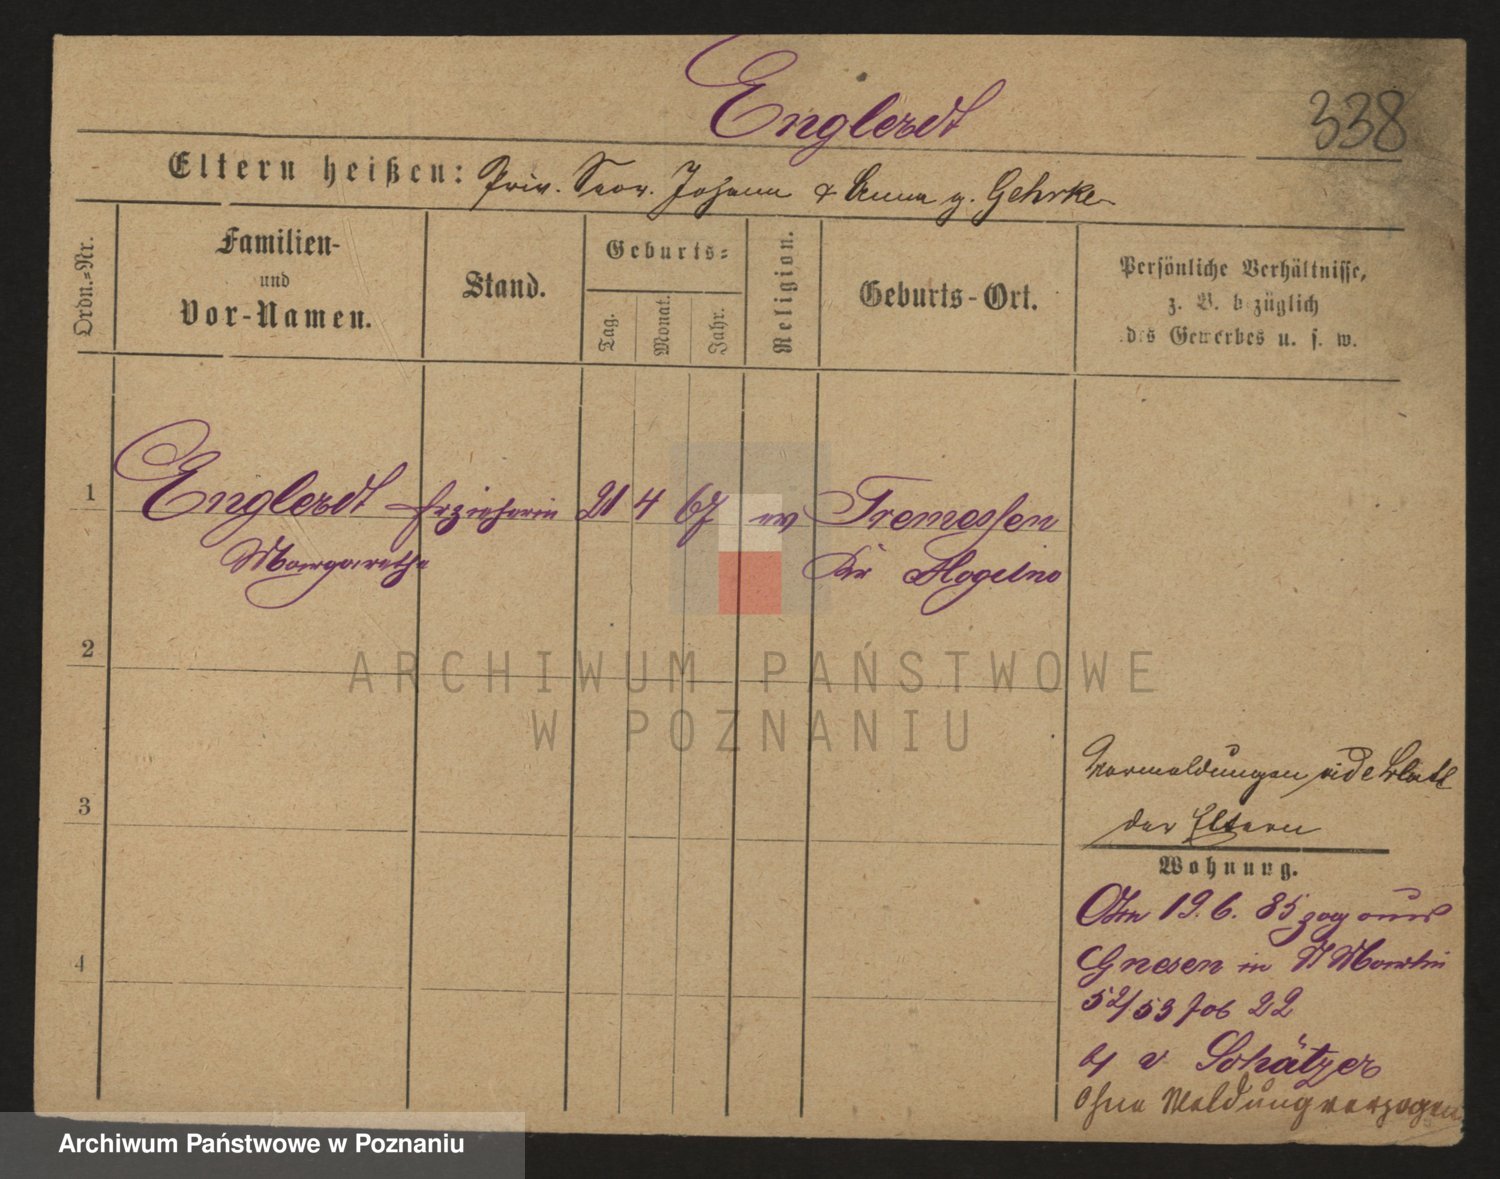 Englerdt
338
Eltern heißen: Priv. Secr. Johann & Anna g. Gehrke
Ordn.=Nr.
Familien-
und
Vor-Namen.
Stand.
Geburts=
Tag.
Monat.
Jahr.
Religion.
Geburts-Ort.
Persönliche Verhältnisse,
z. B. bezüglich
des Gewerbes u. s. w.
1 Englerdt Erzieherin 21 4 67 ev Tremessen
Margarethe Kr Mogilno
2
3
4
Vormeldungen vide Blatt
der Eltern
Wohnung.
Am 19.6.85 zog aus
Gnesen in St Martin
52/53 22
b/ v Schätzer
Ohne Meldung verzogen
ARCHIWUM PAŃSTWOWE
W POZNANIU
Archiwum Państwowe w Poznaniu